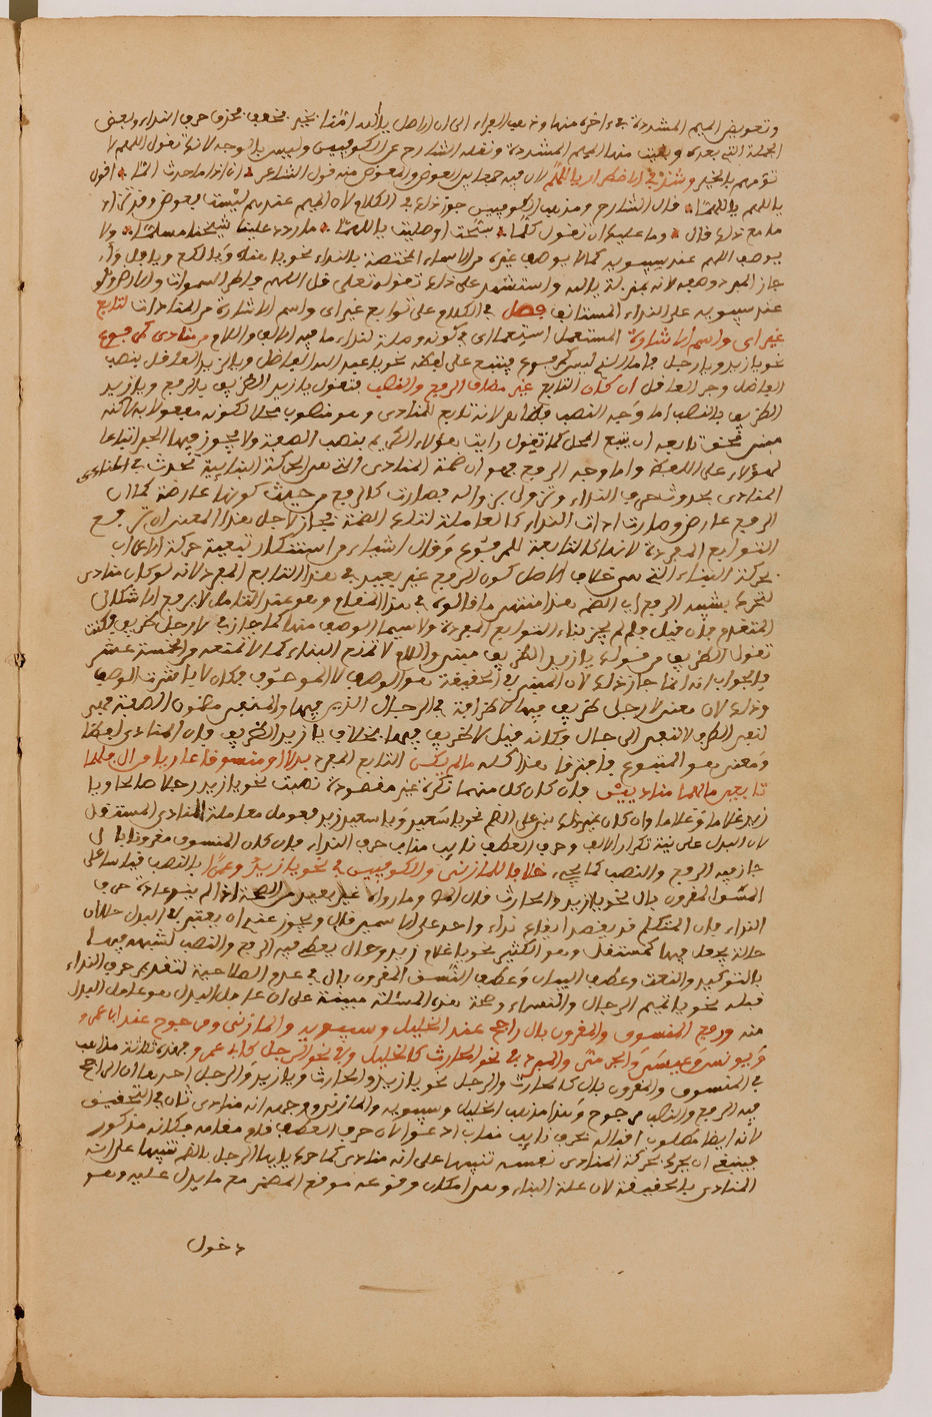 وتعويض الميم المشددة في اخره منها وذهب الفراء الى ان الاصل يا الله امنا بخير فخفف بحذف حرف النداء وبعض
الجملة التي بعده وبقيت منها الميم المشددة ونقله الشارح عن الكوفيين وليس بالوجه لانك تقول اللهم لا
تؤمهم بالخير وشذ في الاضطرار يا اللهم لان فيه جمعا بين العوض والمعوض منه قول الشاعر اني اذا ما حدث المّا اقول
يا اللهم يا اللهمّا قال الشارح ومذهب الكوفيين جواز ذلك في الكلام لان الميم عندهم ليست بعوض وقد تزاد
ما مع ذلك قال وما عليك ان تقولي كلما سبّحت او صليت يا اللهمّا ما اردد علينا شيخنا مسلّما ولا
يوصف اللهم عند سيبويه كما لا يوصف غيره من الاسماء المختصة بالنداء نحو يا هناه ويا لكع ويا فل
جاز المبرد وصفه لانه بمنزلة يا الله واستشهد على ذلك بقوله تعلى قل اللهم فاطر السموات والارض وهو
عند سيبويه على النداء المستانف فصل في الكلام على توابع غير اى واسم الاشارة من المناديات لتابع
غير اى واسم الاشارة المستعمل استعمال اى في كونه وصلة لنداء ما فيه الالف واللام من منادى كمرفوع
نحو يا زيد ويا رجل فاما الذى ليس كمرفوع فيتبع على لفظه نحو يا عبد الله الفاضل ويا لزيد العاقل بنصب
الفاضل وجر العاقل ان كان التابع غير مضاف الرفع والنصب فتقول يا زيد الظريف بالرفع ويا زيد
الظريف بالنصب اما وجه النصب فظاهر لانه تابع للمنادى وهو منصوب محلا لكونه مفعولا به لاكنه
مبنى فحق تابعه ان يتبع المحل كما تقول رايت هؤلاء الكرام بنصب الصفة ولا يجوز فيها الجر اتباعا
لهؤلاء على اللفظ واما وجه الرفع فهو ان ضمة المنادى التي هى الحركة البنائية تحدث في المنادى
المنادى بحدوث حرف النداء وتزول بزواله فصارت كالرفع من حيث كونها عارضة كما ان
الرفع عارض وصارت ادات النداء كالعاملة لتلك الضمة فجاز لاجل هذا المعنى ان ترفع
التوابع المفردة لانها كالتابعة للمرفوع وقال اشياء واستنكار تبعية حركة الاعراب
لحركة البناء التي هى خلاف الاصل كون الرفع غير بعيد في هذا التابع المفرد لانه لو كان منادى
لتحرك بشبه الرفع اى الضم هذا منتهى ما قالوه في هذا المقام وهو عند التامل لا يرفع الاشكال
المتقدم فان قيل فلم لم يجز بناء التوابع المفردة ولا سيما الوصف منها كما جاز في لا رجل ظريف فكنت
تقول الظريف من قولك يا زيد الظريف مبنى واللام لا تمنع البناء كما لا تمنعه في الخمسة عشر
فالجواب انه انما جاز ذلك لان المنفى في الحقيقة هو الوصف لا الموصوف فكان لا باشرت الوصف
وذلك لان معنى لا رجل ظريف فيها لا ظرافة في الرجال الذين فيها والمنفى مضمون الصفة فهى
لنفى الظرف لا لنفى الرجال فكانه قيل لا ظريف فيها بخلاف يا زيد الظريف فان المنادى لفظا
ومعنى هو المتبوع فافترقا هذا كله ما لم يكن التابع المفرد بدلا او منسوقا عاريا من ال فلهما
تابعين ما لهما مناديين فان كان كل منهما نكرة غير مقصودة نصبت نحو يا زيد رجلا صالحا ويا
زيد غلاما وغلاما وان كان غير ذلك بنى على الضم نحو يا سعيد ويا سعيد زيد فعومل معاملة المنادى المستقل
لان البدل على نية تكرار العامل وحرف العطف نايب مناب حرف النداء فان كان المنسوق مقرونا بال
جاز فيه الرفع والنصب كما يجيء خلافا للمازني والكوفيين في نحو يا زيد وعمرًا بالنصب قياسا على
المنسوق المقرون بال نحو يا زيد والحارث قال وما رواه غير بعيد من الصحة اذا لم ينو اعادة حرف
النداء فان المتكلم قد يقصد ايقاع نداء واحد على الاسمين قال ويجوز عندى ان يعتبر في البدل حالان
حالة يجعل فيها كمستقل وهو الكثير نحو يا غلام زيد وحال يعطى فيه الرفع والنصب لشبهه فيها
بالتوكيد والنعت وعطف البيان وعطف النسق المقرون بال في عدم الصلاحية لتقدير حرف النداء
قبله نحو يا تميم الرجال والنساء وصحة هذه المسئلة مبنية على ان عامل البدل هو عامل المبدل
منه ورفع المنسوق والمقرون بال راجح عند الخليل وسيبويه والمازنى ومرجوح عند ابى عمرو
ويونس وعيسى والجرمى والمبرد في نحو الحارث كالخليل وفي نحو الرجل كابى عمرو فهذه ثلاثة مذاهب
في المنسوق والمقرون بال كالحارث والرجل نحو يا زيد والحارث ويا زيد والرجل احدها ان الراجح
فيه الرفع والنصب مرجوح وهذا مذهب الخليل وسيبويه والمازني ووجهه انه منادى ثان في التحقيق
لانه ايضا مطلوب اقباله بحرف نايب مناب ادعو الان حرف العطف قام مقامه فكانه مذكور
فينبغى ان يحرك بحركة المنادى نفسه تنبيها على انه منادى كما حرك يا ايها الرجل بالضم تنبيها على انه
المنادى بالحقيقة لان علة البناء وهى امكان وقوعه موقع المضمر مع ما يدل عليه وهو
دخول